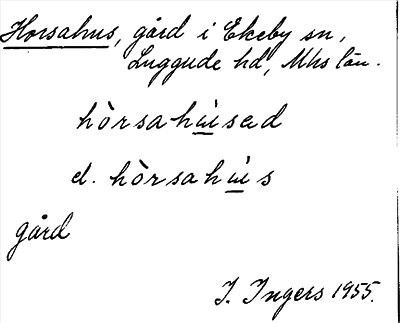 Horsahus, gård i Ekeby sn,
Luggude hd, Mhs län.
hòrsahúsed
el. hòrsahús
gård
I. Ingers 1955.